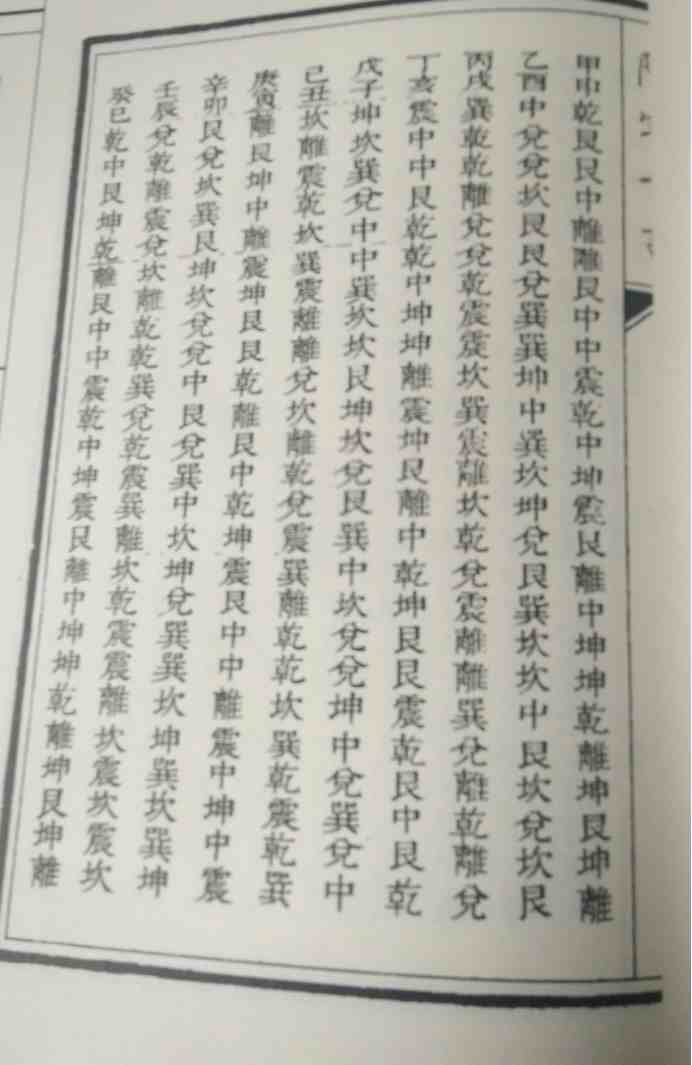 甲申乾艮艮中離離艮中中震乾中坤震艮離中坤坤乾離坤艮坤離
乙酉中兌兌坎艮艮兌巽巽坤中巽坎坤兌艮巽坎坎中艮坎兌坎艮
丙戌巽乾乾離兌兌乾震震坎巽震離坎乾兌震離離巽兌離乾離兌
丁亥震中中艮乾乾中坤坤離震坤艮離中乾坤艮艮震乾艮中艮乾
戊子坤坎巽兌中中巽坎坎艮坤坎兌艮巽中坎兌兌坤中兌巽兌中
己丑坎離震乾坎巽震離離兌坎離乾兌震巽離乾乾坎巽乾震乾巽
庚寅離艮坤中離震坤艮艮乾離艮中乾坤震艮中中離震中坤中震
辛卯艮兌坎巽艮坤坎兌兌中艮兌巽中坎坤兌巽巽坎坤巽坎巽坤
壬辰兌乾離震兌坎離乾乾巽兌乾震巽離坎乾震震離坎震坎震坎
癸巳乾中艮坤乾離艮中中震乾中坤震艮離中坤坤乾離坤艮坤離